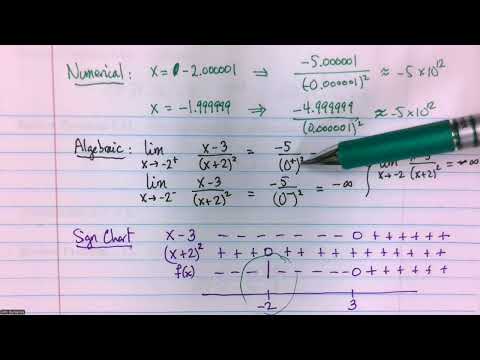 Numerical: x = -2.000001 ⇒ -5.000001/(-0.000001)² ≈ -5×10¹²
x = -1.999999 ⇒ -4.999999/(0.000001)² ≈ -5×10¹²
Algebraic: lim x→-2⁺ x-3/(x+2)² = -5/(0⁺)²
lim x→-2⁻ x-3/(x+2)² = -5/(0⁻)² = -∞ lim x→-2 x-3/(x+2)² = -∞
Sign Chart x-3 - - - - - - - - 0 + + + + + +
(x+2)² + + + 0 + + + + + + + + + + +
f(x) - - - | - - - - - 0 + + + + + +
-2 3